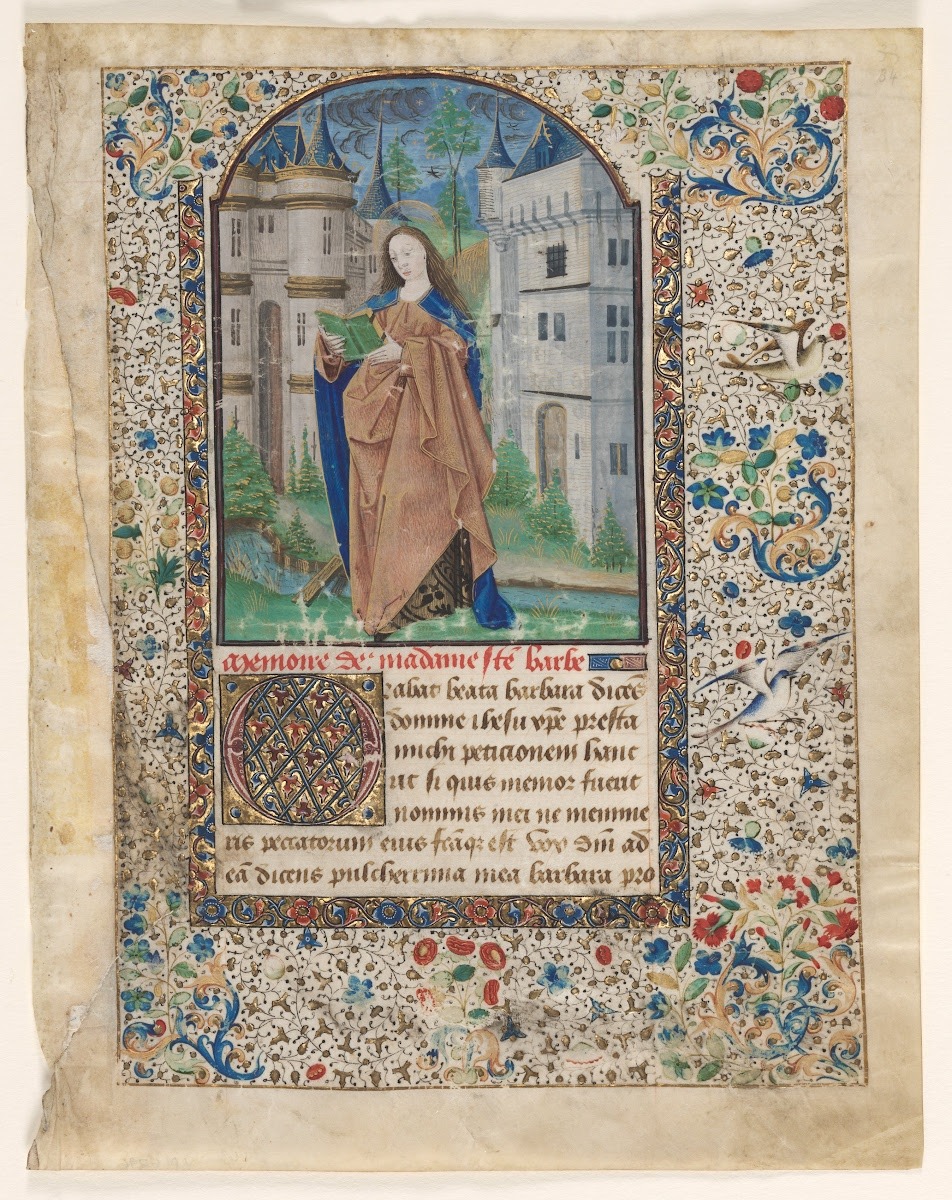 84
Memoire de madame stē barbe
Orabat beata barbara dicēs
domine ihesu xpe presta
michi peticionem hanc
ut si quis memor fuerit
nominis mei ne memine
ris peccatorum eius fcāqꝫ est vox dnī ad
eā dicens pulcherrima mea barbara pro